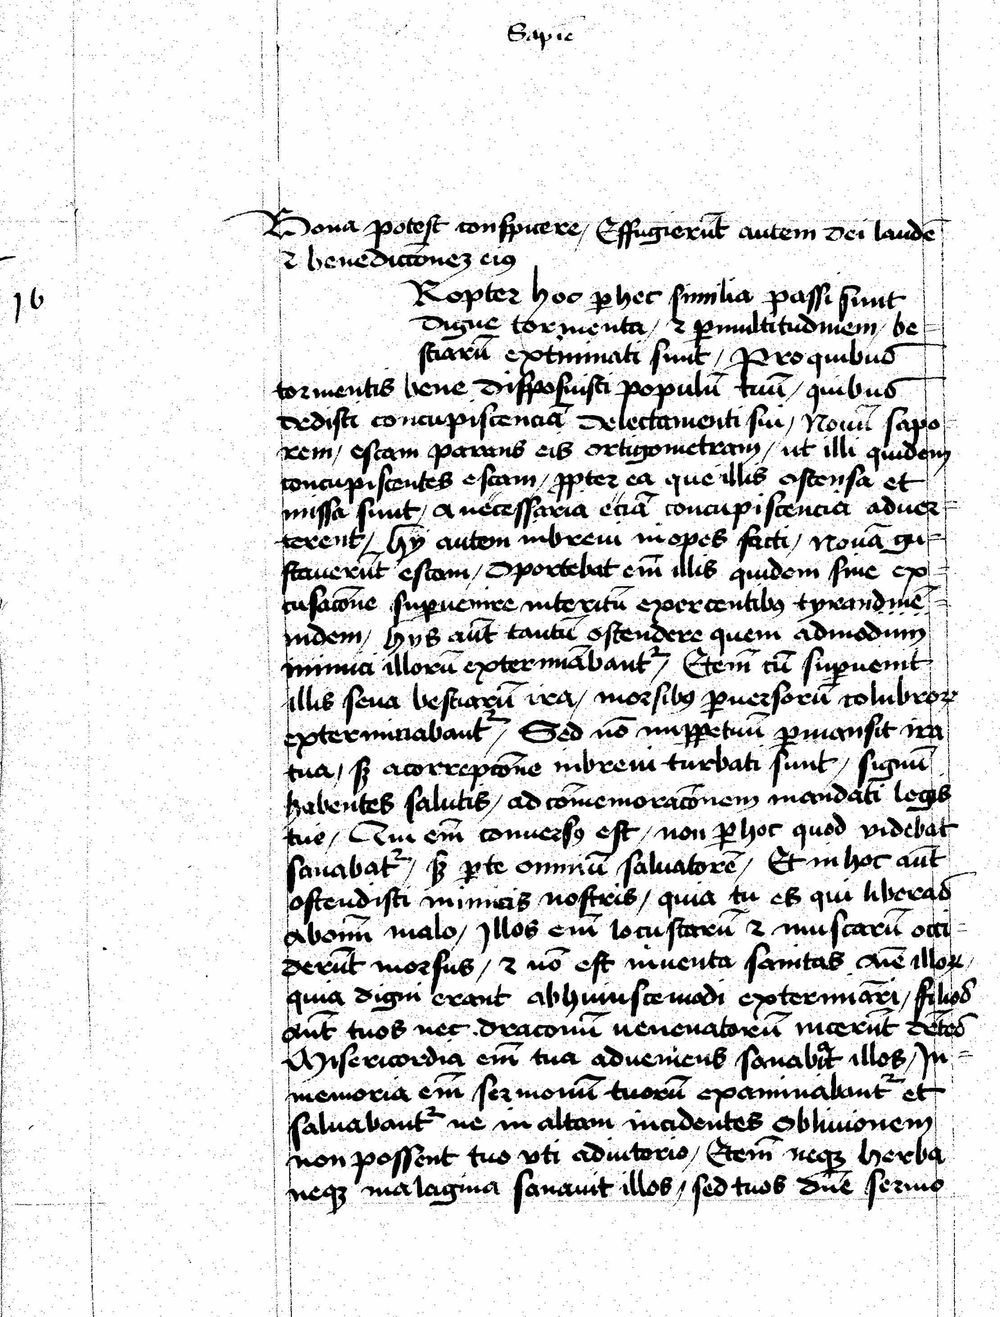 Sapiē
Bona potest conspicere / Effugierūt autem dei laudē
⁊ benedicc̄onez eiꝰ
16
Ropter hoc ꝑ hec similia passi sunt
digne tormenta / ⁊ ꝑ multitudinem be=
stiarū extiminati sunt / Pro quibus
tormentis bene disposuisti populū tuū / quibus
dedisti concupiscenciā delectamenti sui / Nouū sapo=
rem / escam parans eis ortigometram / ut illi quidem
concupiscentes escam / ꝓpter ea que illis ostensa et
missa sunt / a necessaria eciā concupiscencia aduer=
terent / hÿ autem inbreui inopes facti / Nouā gu=
stauerūt escam / Oportebat em̄ illis quidem sine ex=
cusac̄one suꝑuenire interitū exercentibꝰ tyrandinē=
indem / hÿs aūt tantū ostendere quem admodum
inimici illorū exterminabantᷣ / Etem̄ cū suꝑuenit
illis seua bestiarū ira / morsibꝰ ꝑuersorū colubroꝝ
exterminabantᷣ / Sed nō inꝑpetuū ꝑmansit ira
tua / sꝫ acorrepc̄one inbreui turbati sunt / signū
habentes salutis / ad cōmemorac̄onem mandati legis
tue / Qui em̄ conuersꝰ est / non ꝑ hoc quod videbat
sanabatᷣ / sꝫ ꝑ te omniū saluatorē / Et in hoc aūt
ostendisti inimicis nostris / quia tu es qui liberas
ab om̄i malo / Illos em̄ locustarū ⁊ muscarū occi=
derūt morsus / ⁊ nō est inuenta sanitas aīe illoꝝ /
quia digni erant abhuiuscemodi exterminari / filios
aūt tuos nec draconū uenenatorū uicerūt dētes
Misericordia em̄ tua adueniens sanabat illos / In=
memoria em̄ sermonū tuorū examinabantᷣ et
saluabantᷣ ne in altam incidentes obliuionem
non possent tuo vti adiutorio / Etem̄ neqꝫ herba
neqꝫ malagma sanauit illos / sed tuos dn̄e sermo